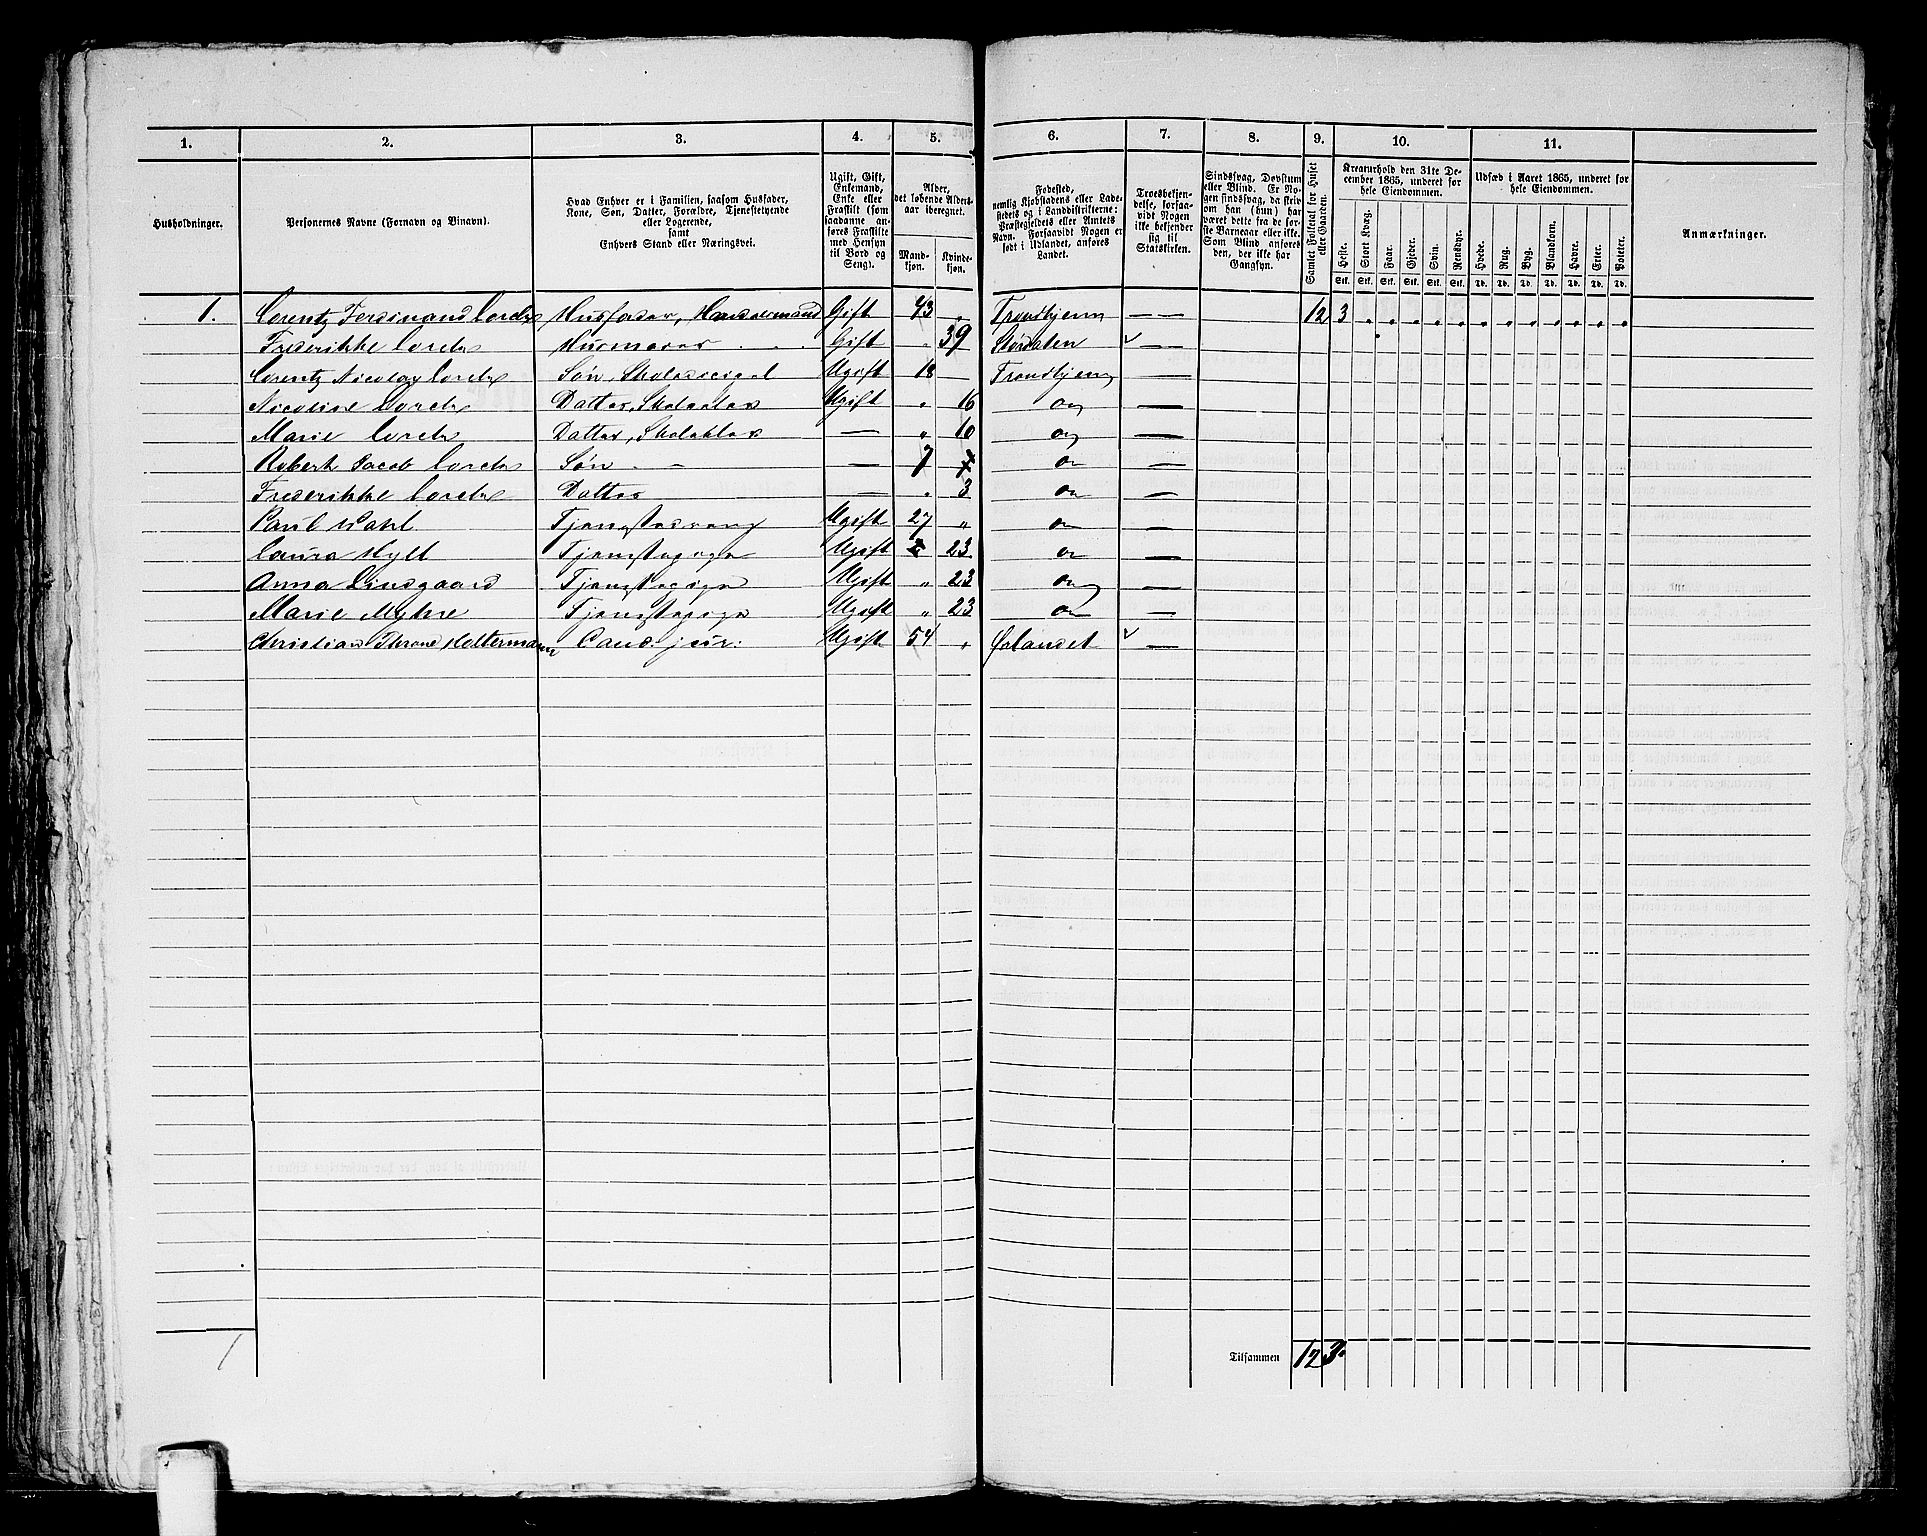 1. 2. 3. 4. 5. 6. 7. 8. 9. 10. 11.
Husholdninger.
Personernes Navne (Fornavn og Binavn).
Hvad Enhver er i Familien, saasom Husfader,
Kone, Søn, Datter, Forældre, Tjenestetyende
eller Logerende,
samt
Enhvers Stand eller Næringsvei.
Ugift, Gift,
Enkemand,
Enke eller
Fraskilt (som
saadanne an-
føres Fraskilte
med Hensyn
til Bord og
Seng).
Alder,
det løbende Alders-
aar iberegnet.
Mand-
kjøn.
Kvinde-
kjøn.
Fødested,
nemlig Kjøbstadens eller Lade-
stedets og i Landdistrikterne:
Præstegjeldets eller Amtets
Navn. Forsaavidt Nogen er
født i Udlandet, anføres
Landet.
Troesbekjen-
delse, forsaa-
vidt Nogen
ikke bekjender
sig til
Statskirken.
Sindssvag, Døvstum
eller Blind. Er No-
gen sindssvag, da skriv
om han (hun) har
været dette fra de før-
ste Barneaar eller ikke.
Som Blind anføres
den, der ikke har
Gangsyn.
Samlet Folketal for Huset
eller Gaarden.
Kreaturhold den 31te De-
cember 1865, underet for
hele Eiendommen.
Heste. Stort Kvæg. Faar. Gjeder. Svin. Rensdyr.
Stk. Stk. Stk. Stk. Stk. Stk.
Udsæd i Aaret 1865, underet for
hele Eiendommen.
Hvede. Rug. Byg. Blandkorn. Havre. Erter. Poteter.
Td. Td. Td. Td. Td. Td. Td.
Anmærkninger.
1. Lorentz Ferdinand Lorck Husfader, Handelsmand Gift 43 " Trondhjem — 12 3 " " " " " " " " " " " "
Frederikke Lorck Husmoder Gift " 39 Størdalen v —
Lorentz Nicolay Lorck Søn, Skoledicipel Ugift 18 — Trondhjem —
Nicoline Lorck Datter, Skoleelev Ugift " 16 do —
Marie Lorck Datter, Skoleelev — " 10 do —
Robert Jacob Lorck Søn — — 7 do —
Frederikke Lorck Datter — " 3 do —
Paul Wahl Tjenestedreng Ugift 27 " do —
Laura Hyll Tjenestepige Ugift 23 do —
Anna Lindgaard Tjenestepige Ugift " 23 do —
Marie Myhre Tjenestepige Ugift " 23 do —
Christian Throne Heltermann Cand: jur: Ugift 54 " Ørlandet v —
1
Tilsammen 12 3